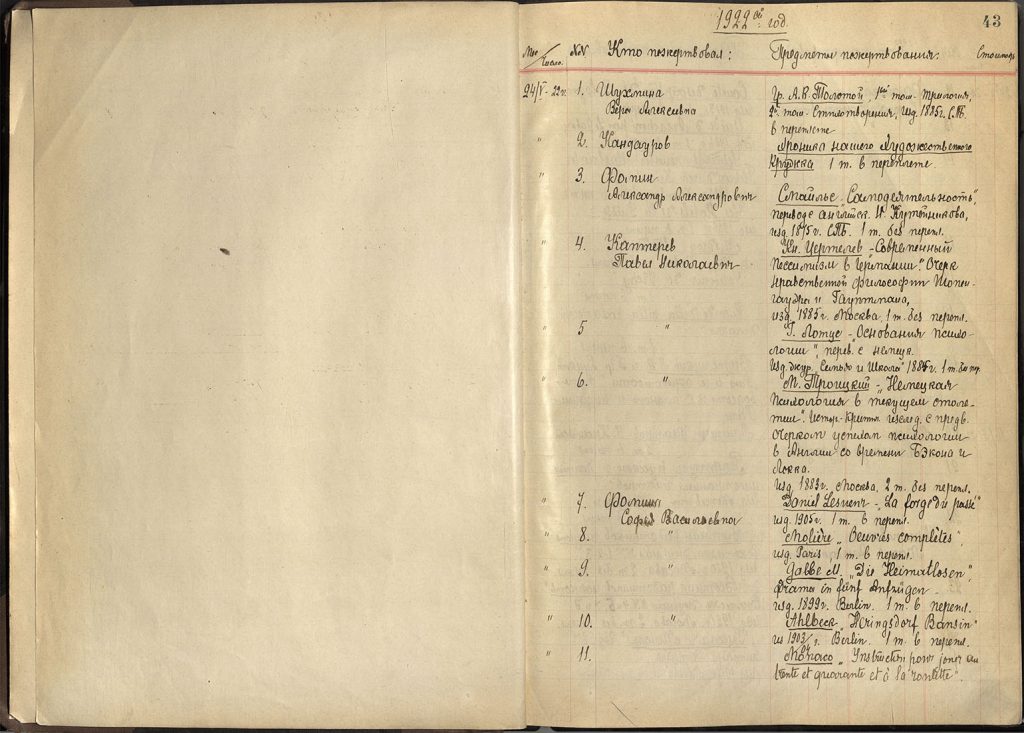 1922ой год.
43
Мес./число. NN Кто пожертвовал: Предметы пожертвования: Стоимость
24/V - 22г. 1. Шухмина Гр. А.К. Толстой, 1ый том - трилогия,
Вера Алексеевна 2й том - Стихотворения, изд. 1895г. С.П.
в переплете
" 2. Кандауров Хроника нашего Художественного
Кружка 1 т. в переплете.
" 3. Фомин
Александр Александрович Смайльс „Самодеятельность",
переводе английск. Н. Кутейникова,
изд. 1875г. СПБ. 1 т. без перепл.
" 4. Каптерев Кн. Цертелев - „Современный
Павел Николаевич пессимизм в Германии." Очерк
нравственной философии Шопен-
гауэра и Гартмана,
изд. 1885г. Москва, 1 т. без перепл.
" 5 " Г. Лотце - „Основания психо-
логии", перев. с немецк.
Изд. журн. „Семья и Школа" 1885г. 1 т. без пер.
" 6. " М. Троицкий - „Немецкая
психология в текущем столе-
тии". Истор. - Критич. исслед. с предв.
очерком успехов психологии
в Англии со времени Бэкона и
Локка.
изд. 1883г. Москва, 2 т. без перепл.
" 7. Фомина Daniel Lesueur - „La force du passé"
Софья Васильевна изд. 1905г. 1 т. в перепл.
" 8. " Molière „Oeuvres complètes",
изд. Paris, 1 т. в перепл.
" 9. " M. „Die Heimatlosen",
Drama in fünf Aufzügen.
изд. 1899г. Berlin. 1 т. в перепл.
" 10. " Ahlbeck „Heringsdorf Bansin"
из 1903 г. Berlin. 1 т. в перепл.
" 11. Monaco „Instruction pour jouer au
trente et quarante et à la roulette".